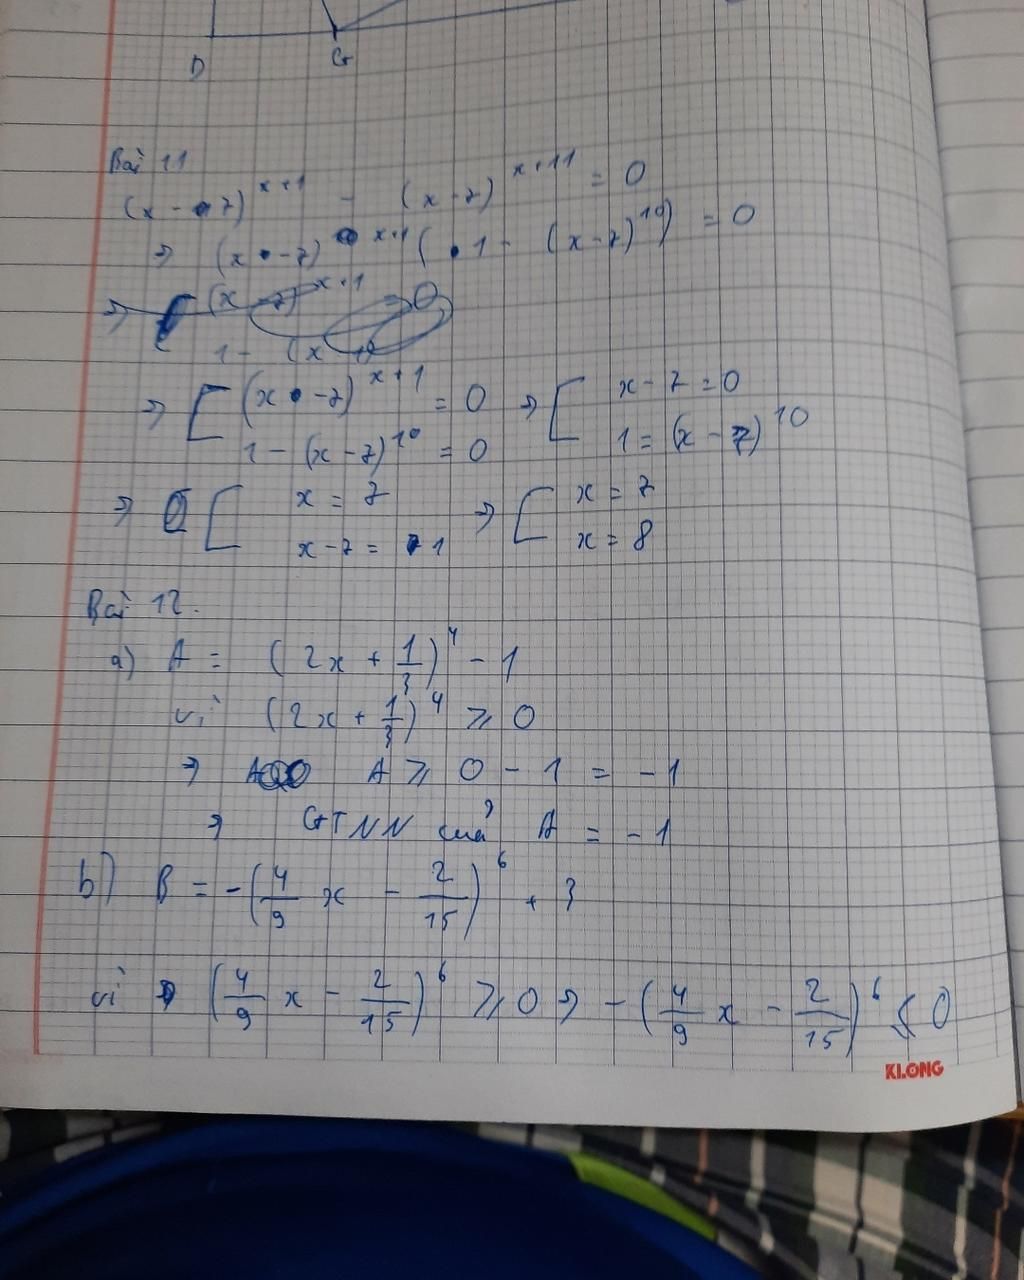 D G
Bài 11
(x - 7)^{x+1} - (x - 7)^{x+11} = 0
⇒ (x - 7)^{x+1} (1 - (x - 7)^{10}) = 0
⇒ [ (x - 7)^{x+1} = 0 ⇒ [ x - 7 = 0
1 - (x - 7)^{10} = 0 1 = (x - 7)^{10}
⇒ [ x = 7 ⇒ [ x = 7
x - 7 = 1 x = 8
Bài 12.
a) A = (2x + 1/3)^4 - 1
vì (2x + 1/3)^4 ⩾ 0
⇒ A ⩾ 0 - 1 = -1
⇒ GTNN của A = -1
b) B = -(4/9 x - 2/15)^6 + 3
vì (4/9 x - 2/15)^6 ⩾ 0 ⇒ -(4/9 x - 2/15)^6 ⩽ 0
KLONG